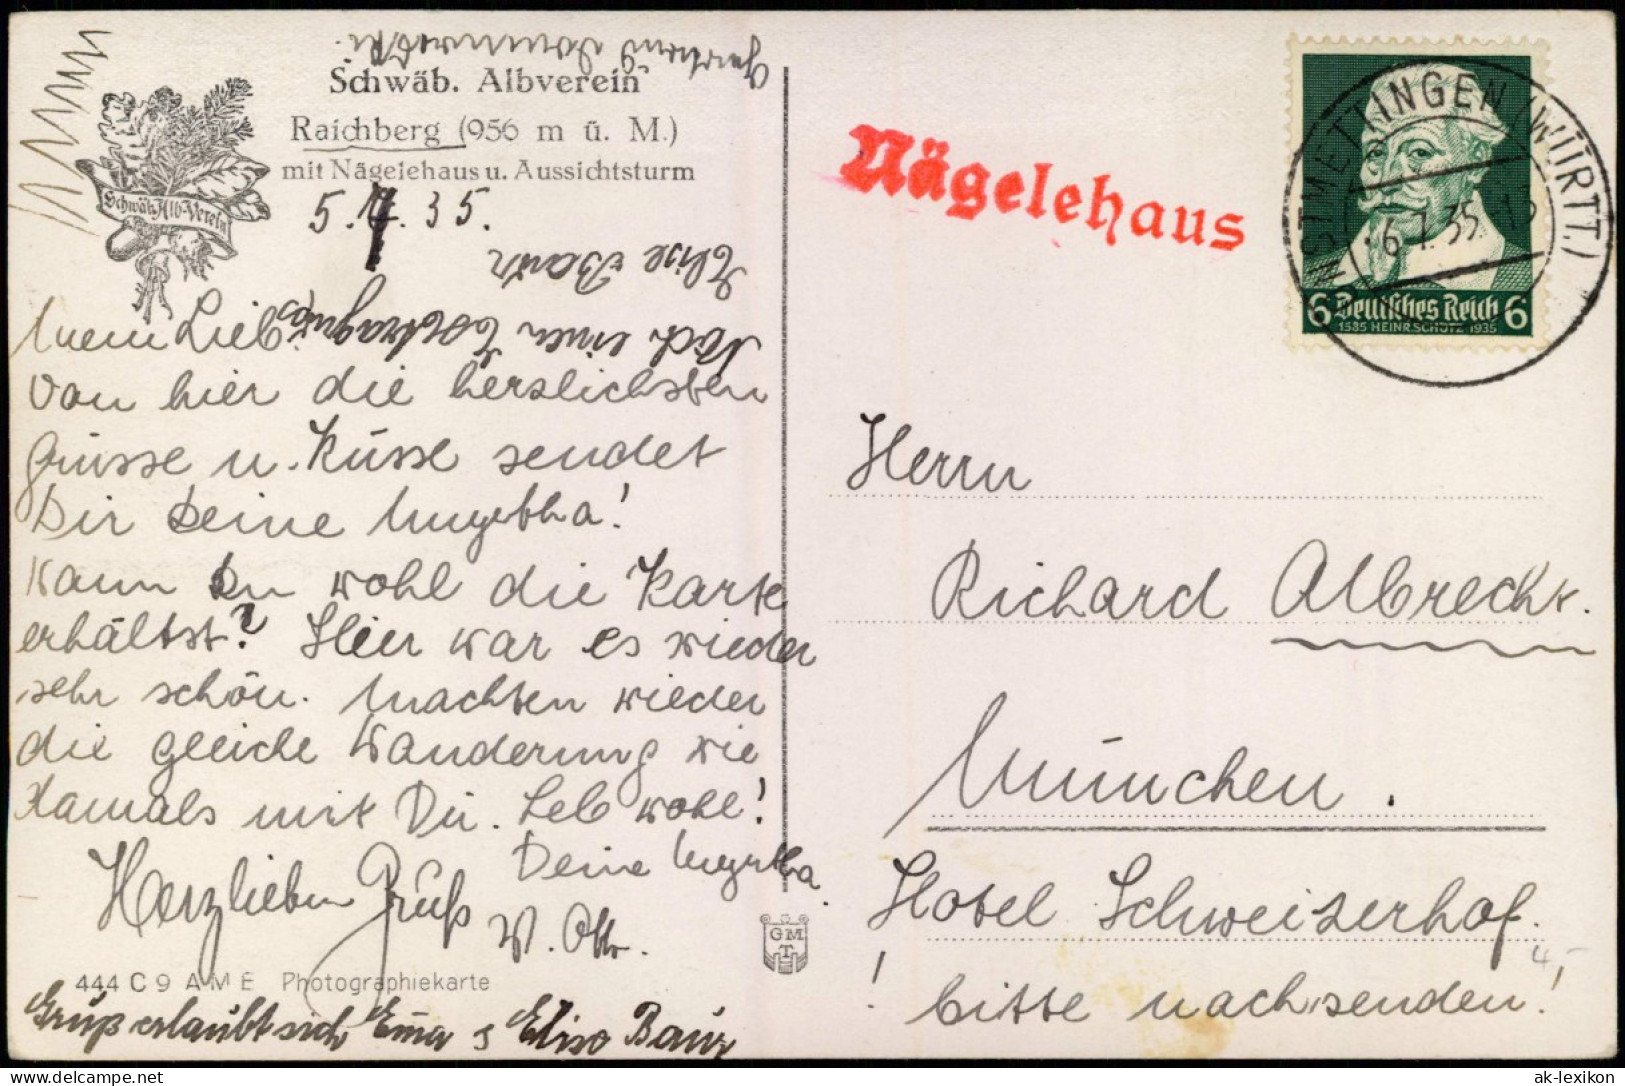 Schwäb. Albverein
Raichberg (956 m ü. M.)
mit Nägelehaus u. Aussichtsturm
Schwäb. Alb-Verein
5. 7. 35.
Elise Baur
Noch einen
Mein Lieb
von hier die herzlichsten
Grüsse u. Küsse sendet
Dir Deine Myrtha!
Wann Du wohl die Karte
erhältst? Hier war es wieder
sehr schön. Machten wieder
die gleiche Wanderung wie
damals mit Dir. Leb wohl!
Deine Myrtha.
Herzlieben Gruß
W. Otto.
444 C 9 A M E Photographiekarte
Gruß erlaubt sich Ema & Elise Baur
GMT
Nägelehaus
ONSTMETTINGEN (WÜRTT.)
6.7.35.
6 Deutsches Reich 6
1585 HEINR. SCHÜTZ 1935
Herrn
Richard Albrecht.
München.
Hotel Schweizerhof.
4,-
! bitte nachsenden!
www.ansichtskarten-lexikon.de
ak-lexikon